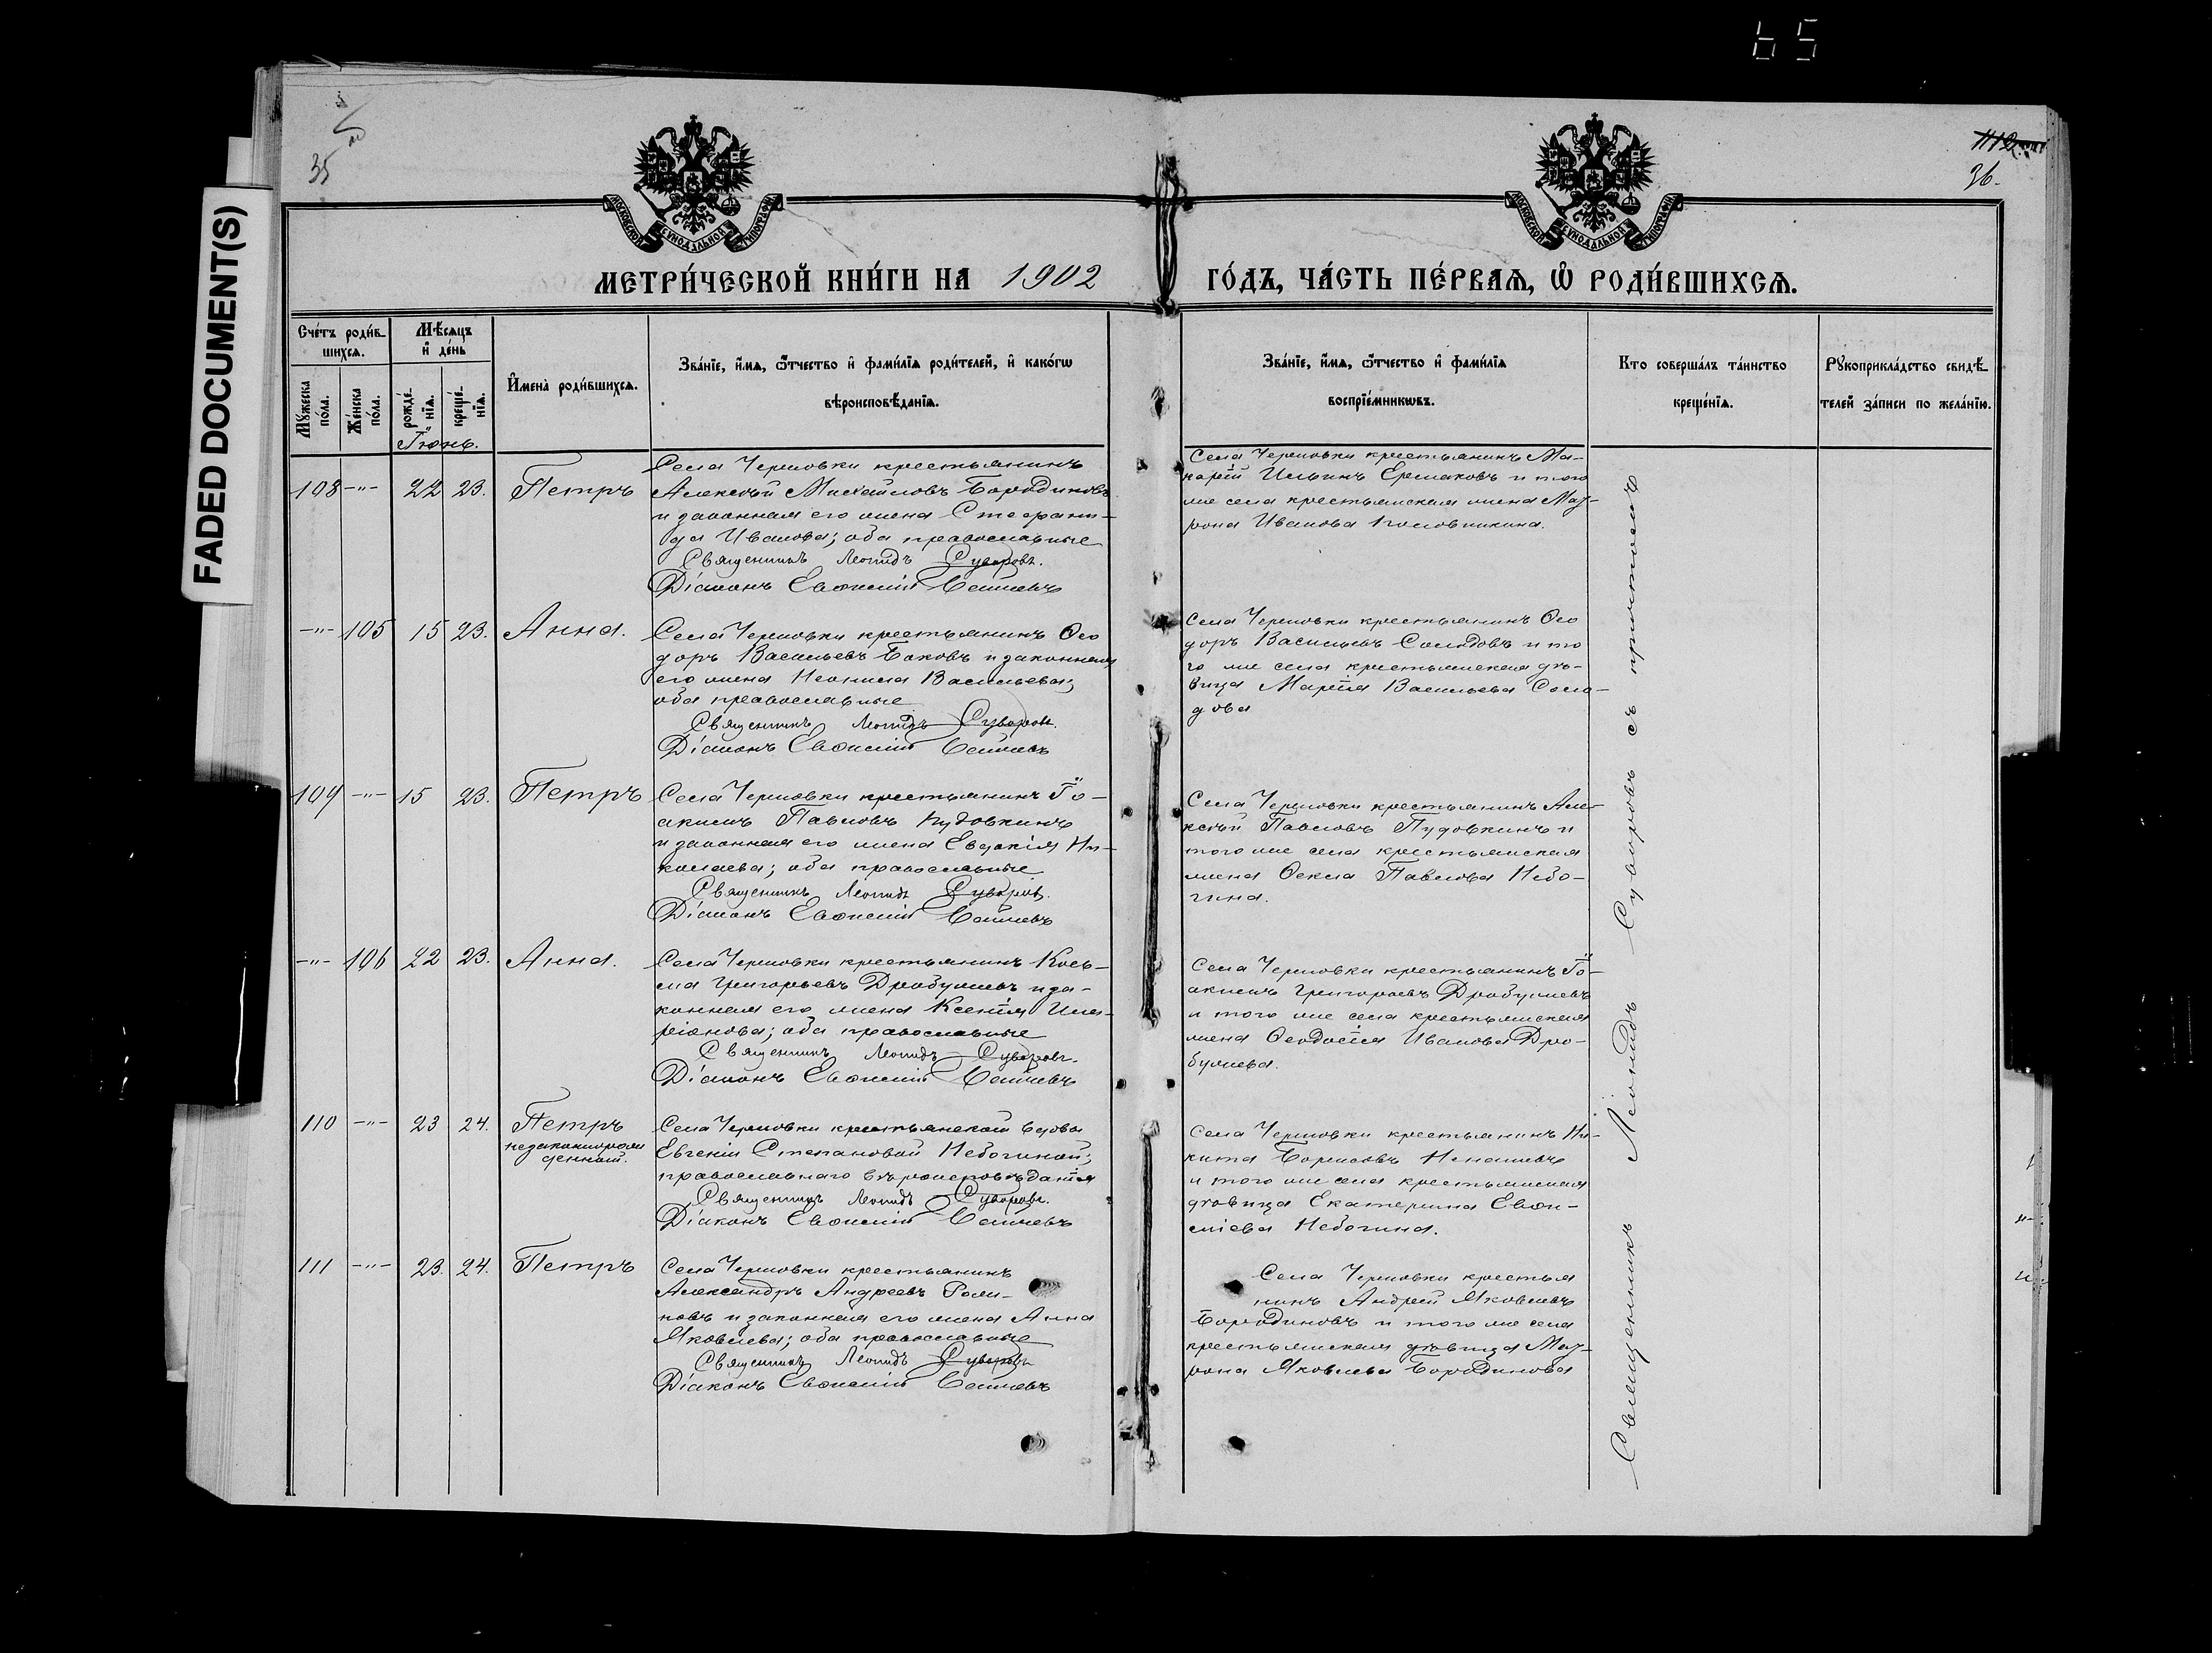 65
FADED DOCUMENT(S)
35
112
36.
МОСКОВСКОЙ СѴНОДАЛЬНОЙ ТИПОГРАФІИ
МОСКОВСКОЙ СѴНОДАЛЬНОЙ ТИПОГРАФІИ
МЕТРИ́ЧЕСКОЙ КНИ́ГИ НА 1902
ГО́ДЪ, ЧА́СТЬ ПЕ́РВАѦ, Ѽ РОДИ́ВШИХСѦ.
Сче́тъ роди́в-
шихсѧ.
Мѣ́сѧцъ
и҆ де́нь
Мꙋ́жеска
по́ла.
Же́нска
по́ла.
рожде́-
нїѧ.
креще́-
нїѧ.
Іюнь.
И҆мена̀ роди́вшихсѧ.
Зва́нїе, и҆́мѧ, ѻ҆́тчество и҆ фами́лїѧ роди́телей, и҆ како́гѡ
вѣроисповѣ́данїѧ.
Зва́нїе, и҆́мѧ, ѻ҆́тчество и҆ фами́лїѧ
воспрїе́мникѡвъ.
Кто соверша́лъ та́инство
креще́нїѧ.
Рꙋкоприкла́дство свидѣ́-
телей за́писи по жела́нїю.
108 -"- 22 23. Петръ
Села Черновки крестьянинъ
Алексѣй Михайловъ Бородиновъ
и законная его жена Стефани-
да Иванова; оба православные
Священникъ Леонидъ Суворовъ.
Діаконъ Евѳимій
Села Черновки крестьянинъ Ма-
карій Ильинъ Ермаковъ и того
же села крестьянская жена Мав-
рона Иванова
-"- 105 15 23. Анна.
Села Черновки крестьянинъ Ѳео
доръ Васильевъ Баковъ и законная
его жена Неонила Васильева;
оба православные
Священникъ Леонидъ Суворовъ.
Діаконъ Евѳимій
Села Черновки крестьянинъ Ѳео
доръ Васильевъ Солодовъ и то
го же села крестьянская дѣ-
вица Марія Васильева Соло-
дова
109 -"- 15 23. Петръ
Села Черновки крестьянинъ Іо-
акимъ Павловъ Пудовкинъ
и законная его жена Евдокія Ни-
колаева; оба православные
Священникъ Леонидъ Суворовъ.
Діаконъ Евѳимій
Села Черновки крестьянинъ Але-
ксѣй Павловъ Пудовкинъ и
того же села крестьянская
жена Ѳекла Павлова Небо-
гина.
-"- 106 22 23. Анна.
Села Черновки крестьянинъ Козь-
ма Григорьевъ Дробужевъ и за-
конная его жена Ксенія Ила-
ріонова; оба православные
Священникъ Леонидъ Суворовъ.
Діаконъ Евѳимій
Села Черновки крестьянинъ Іо-
акимъ Григорьевъ Дробужевъ
и того же села крестьянская
жена Ѳеодосія Иванова Дро-
бужева.
110 -"- 23 24. Петръ
незаконнорож
денный.
Села Черновки крестьянской вдовы
Евгеніи Степановой Небогиной;
православнаго вѣроисповѣданія
Священникъ Леонидъ Суворовъ.
Діаконъ Евѳимій
Села Черновки крестьянинъ Ни-
кита Борисовъ
и того же села крестьянская
дѣвица Екатерина Евѳи-
міева Небогина.
111 -"- 23. 24. Петръ
Села Черновки крестьянинъ
Александръ Андреевъ
и законная его жена Анна
Яковлева; оба православные
Священникъ Леонидъ Суворовъ
Діаконъ Евѳимій
Села Черновки крестья
нинъ Андрей Яковлевъ
Бородиновъ и того же села
крестьянская дѣвица Мав-
рона Яковлева Бородинова
Священникъ Леонидъ Суворовъ съ причтомъ